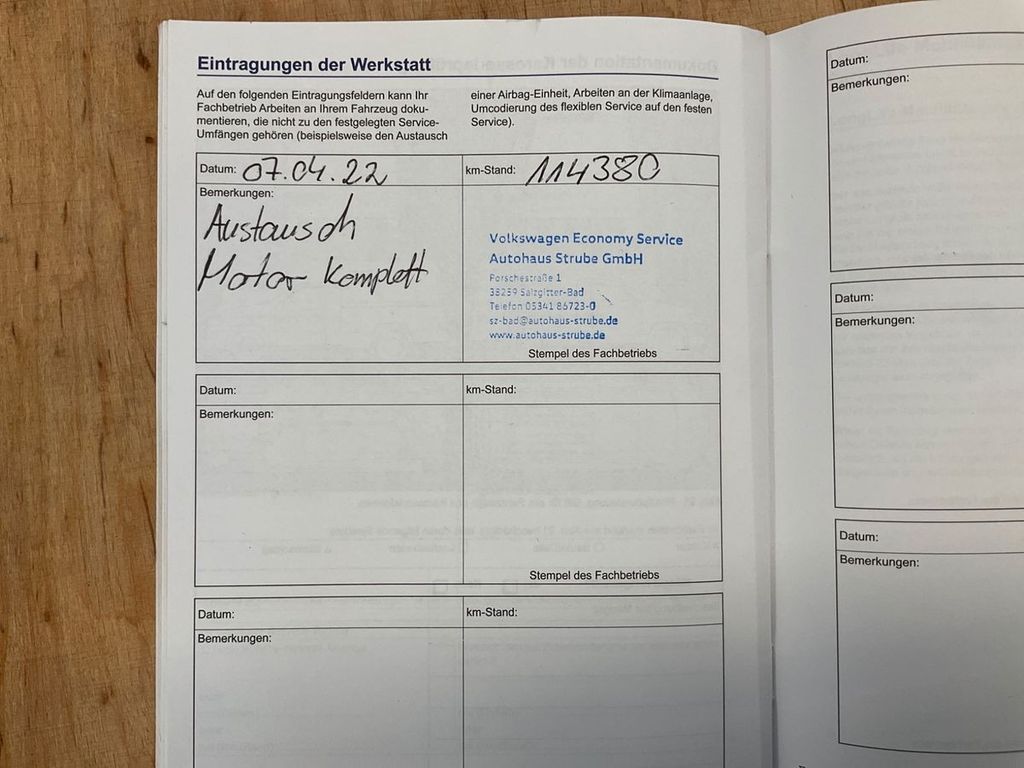 Eintragungen der Werkstatt
Auf den folgenden Eintragungsfeldern kann Ihr
Fachbetrieb Arbeiten an Ihrem Fahrzeug doku-
mentieren, die nicht zu den festgelegten Service-
Umfängen gehören (beispielsweise den Austausch
einer Airbag-Einheit, Arbeiten an der Klimaanlage,
Umcodierung des flexiblen Service auf den festen
Service).
Datum: 07.04.22
km-Stand: 114380
Bemerkungen:
Austausch
Motor komplett
Volkswagen Economy Service
Autohaus Strube GmbH
Porschestraße 1
38259 Salzgitter-Bad
Telefon 05341 86723-0
sz-bad@autohaus-strube.de
www.autohaus-strube.de
Stempel des Fachbetriebs
Datum:
km-Stand:
Bemerkungen:
Stempel des Fachbetriebs
Datum:
km-Stand:
Bemerkungen:
Datum:
Bemerkungen:
Datum:
Bemerkungen:
Datum:
Bemerkungen: